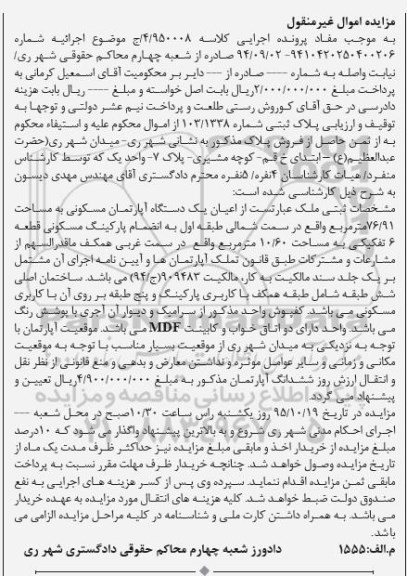 مزایده اموال غیرمنقول
به موجب مفاد پرونده اجرایی کلاسه ۴/۹۵۰۰۰۸/ج موضوع اجرائیه شماره
۹۴۱۰۴۲۰۲۵۰۴۰۰۲۰۶- ۹۴/۰۹/۰۲ صادره از شعبه چهارم محاکم حقوقی شهر ری/
نیابت واصله به شماره ---- صادره از --- دایر بر محکومیت آقای اسمعیل کرمانی به
پرداخت مبلغ ۲/۰۰۰/۰۰۰/۰۰۰ریال بابت اصل خواسته و مبلغ ---- ریال بابت هزینه
دادرسی در حق آقای کوروش رستی طلعت و پرداخت نیم عشر دولتی و توجها به
توقیف و ارزیابی پلاک ثبتی شماره ۱۰۳/۱۳۳۸ از اموال محکوم علیه و استیفاء محکوم
به از ثمن حاصل از فروش پلاک مذکور به نشانی شهر ری- میدان شهر ری(حضرت
عبدالعظیم(ع) – ابتدای خ قم- کوچه مشیری- پلاک ۷- واحد یک که توسط کارشناس
منفرد/ هیات کارشناسان ۴نفره/ ۵نفره محترم دادگستری آقای مهندس مهدی دیسون
به شرح ذیل کارشناسی شده است:
مشخصات ثبتی ملک عبارتست از اعیان یک دستگاه آپارتمان مسکونی به مساحت
۷۶/۹۱مترمربع واقع در سمت شمالی طبقه اول به انضمام پارکینگ مسکونی قطعه
۶ تفکیکی به مساحت ۱۰/۶۰ مترمربع واقع در سمت غربی همکف ماقدرالسهم از
مشارعات و مشترکات طبق قانون تملک آپارتمان ها و آیین نامه اجرای آن مشتمل
بر یک جلد سند مالکیت به کار: مالکیت ۹۰۹۴۸۳(ج/۹۴) می باشد. ساختمان اصلی
شش طبقه شامل طبقه همکف با کاربری پارکینگ و پنج طبقه بر روی آن با کاربری
مسکونی می باشد. کفپوش واحد مذکور از سرامیک و دیوار آن آجری با پوشش رنگ
می باشد. واحد دارای دو اتاق خواب و کابینت MDF می باشد. موقعیت آپارتمان با
توجه به نزدیکی به میدان شهر ری از موقعیت بسیار مناسب با توجه به موقعیت
مکانی و زمانی و سایر عوامل موثره و نداشتن معارض و بدهی و منع قانونی از نظر نقل
و انتقال ارزش روز ششدانگ آپارتمان مذکور به مبلغ ۴/۹۰۰/۰۰۰/۰۰۰ریال تعیین و
پیشنهاد می گردد.
مزایده در تاریخ ۹۵/۱۰/۱۹ روز یکشنبه راس ساعت ۱۰/۳۰صبح در محل شعبه ---
اجرای احکام مدنی شهر ری شروع و به بالاترین پیشنهاد واگذار می شود که ۱۰درصد
مبلغ مزایده از خریدار اخذ و مابقی مبلغ مزایده نیز حداکثر ظرف مدت یک ماه از
تاریخ مزایده وصول خواهد شد. چنانچه خریدار ظرف مهلت مقرر نسبت به پرداخت
مابقی ثمن مزایده اقدام ننماید. سپرده وی پس از کسر هزینه های اجرایی به نفع
صندوق دولت ضبط خواهد شد. کلیه هزینه های انتقال مورد مزایده به عهده خریدار
می باشد. به همراه داشتن کارت ملی و شناسنامه در کلیه مراحل مزایده الزامی می
باشد.
م.الف:۱۵۵۵ دادورز شعبه چهارم محاکم حقوقی دادگستری شهر ری